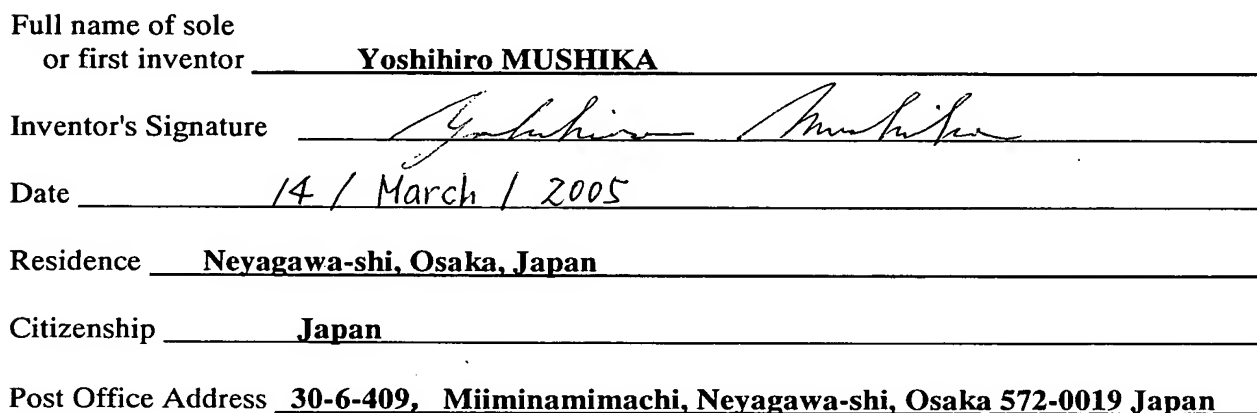 Full name of sole
or first inventor Yoshihiro MUSHIKA
Inventor's Signature Yoshihiro Mushika
Date 14 / March / 2005
Residence Neyagawa-shi, Osaka, Japan
Citizenship Japan
Post Office Address 30-6-409, Miiminamimachi, Neyagawa-shi, Osaka 572-0019 Japan